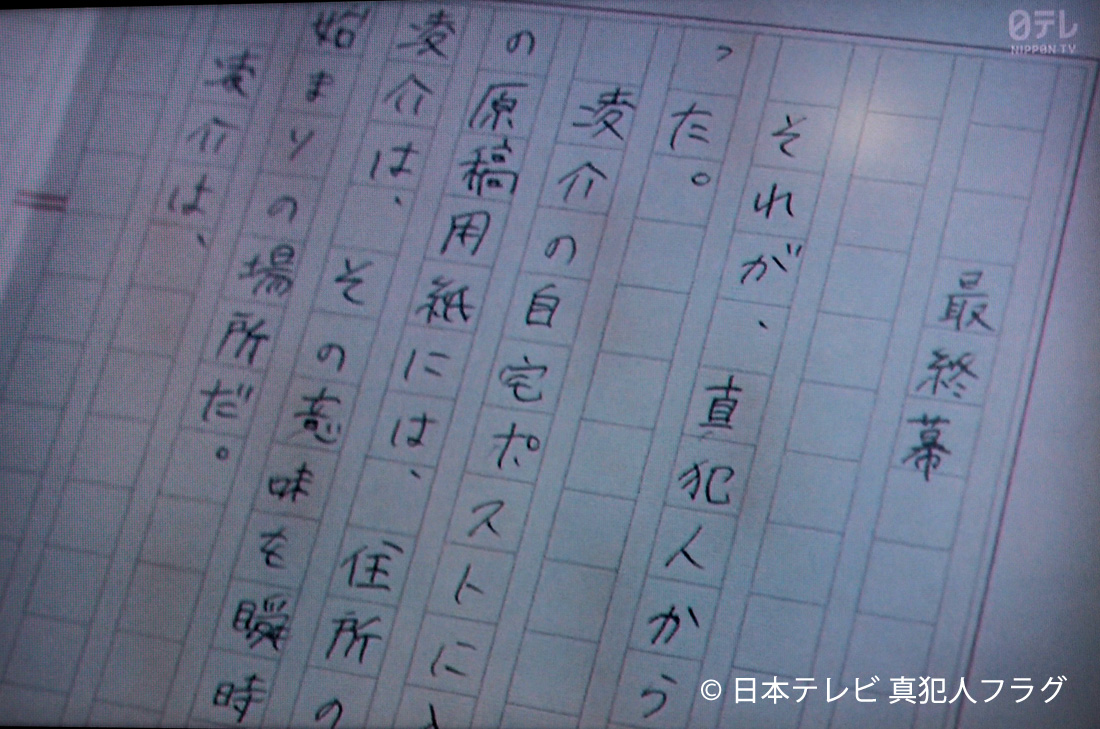 最終幕
それが、真犯人から
った。
凌介の自宅ポストに
の原稿用紙には、住所の
凌介は、その意味を瞬時
始まりの場所だ。
凌介は、
日テレ
NIPPON TV
© 日本テレビ 真犯人フラグ